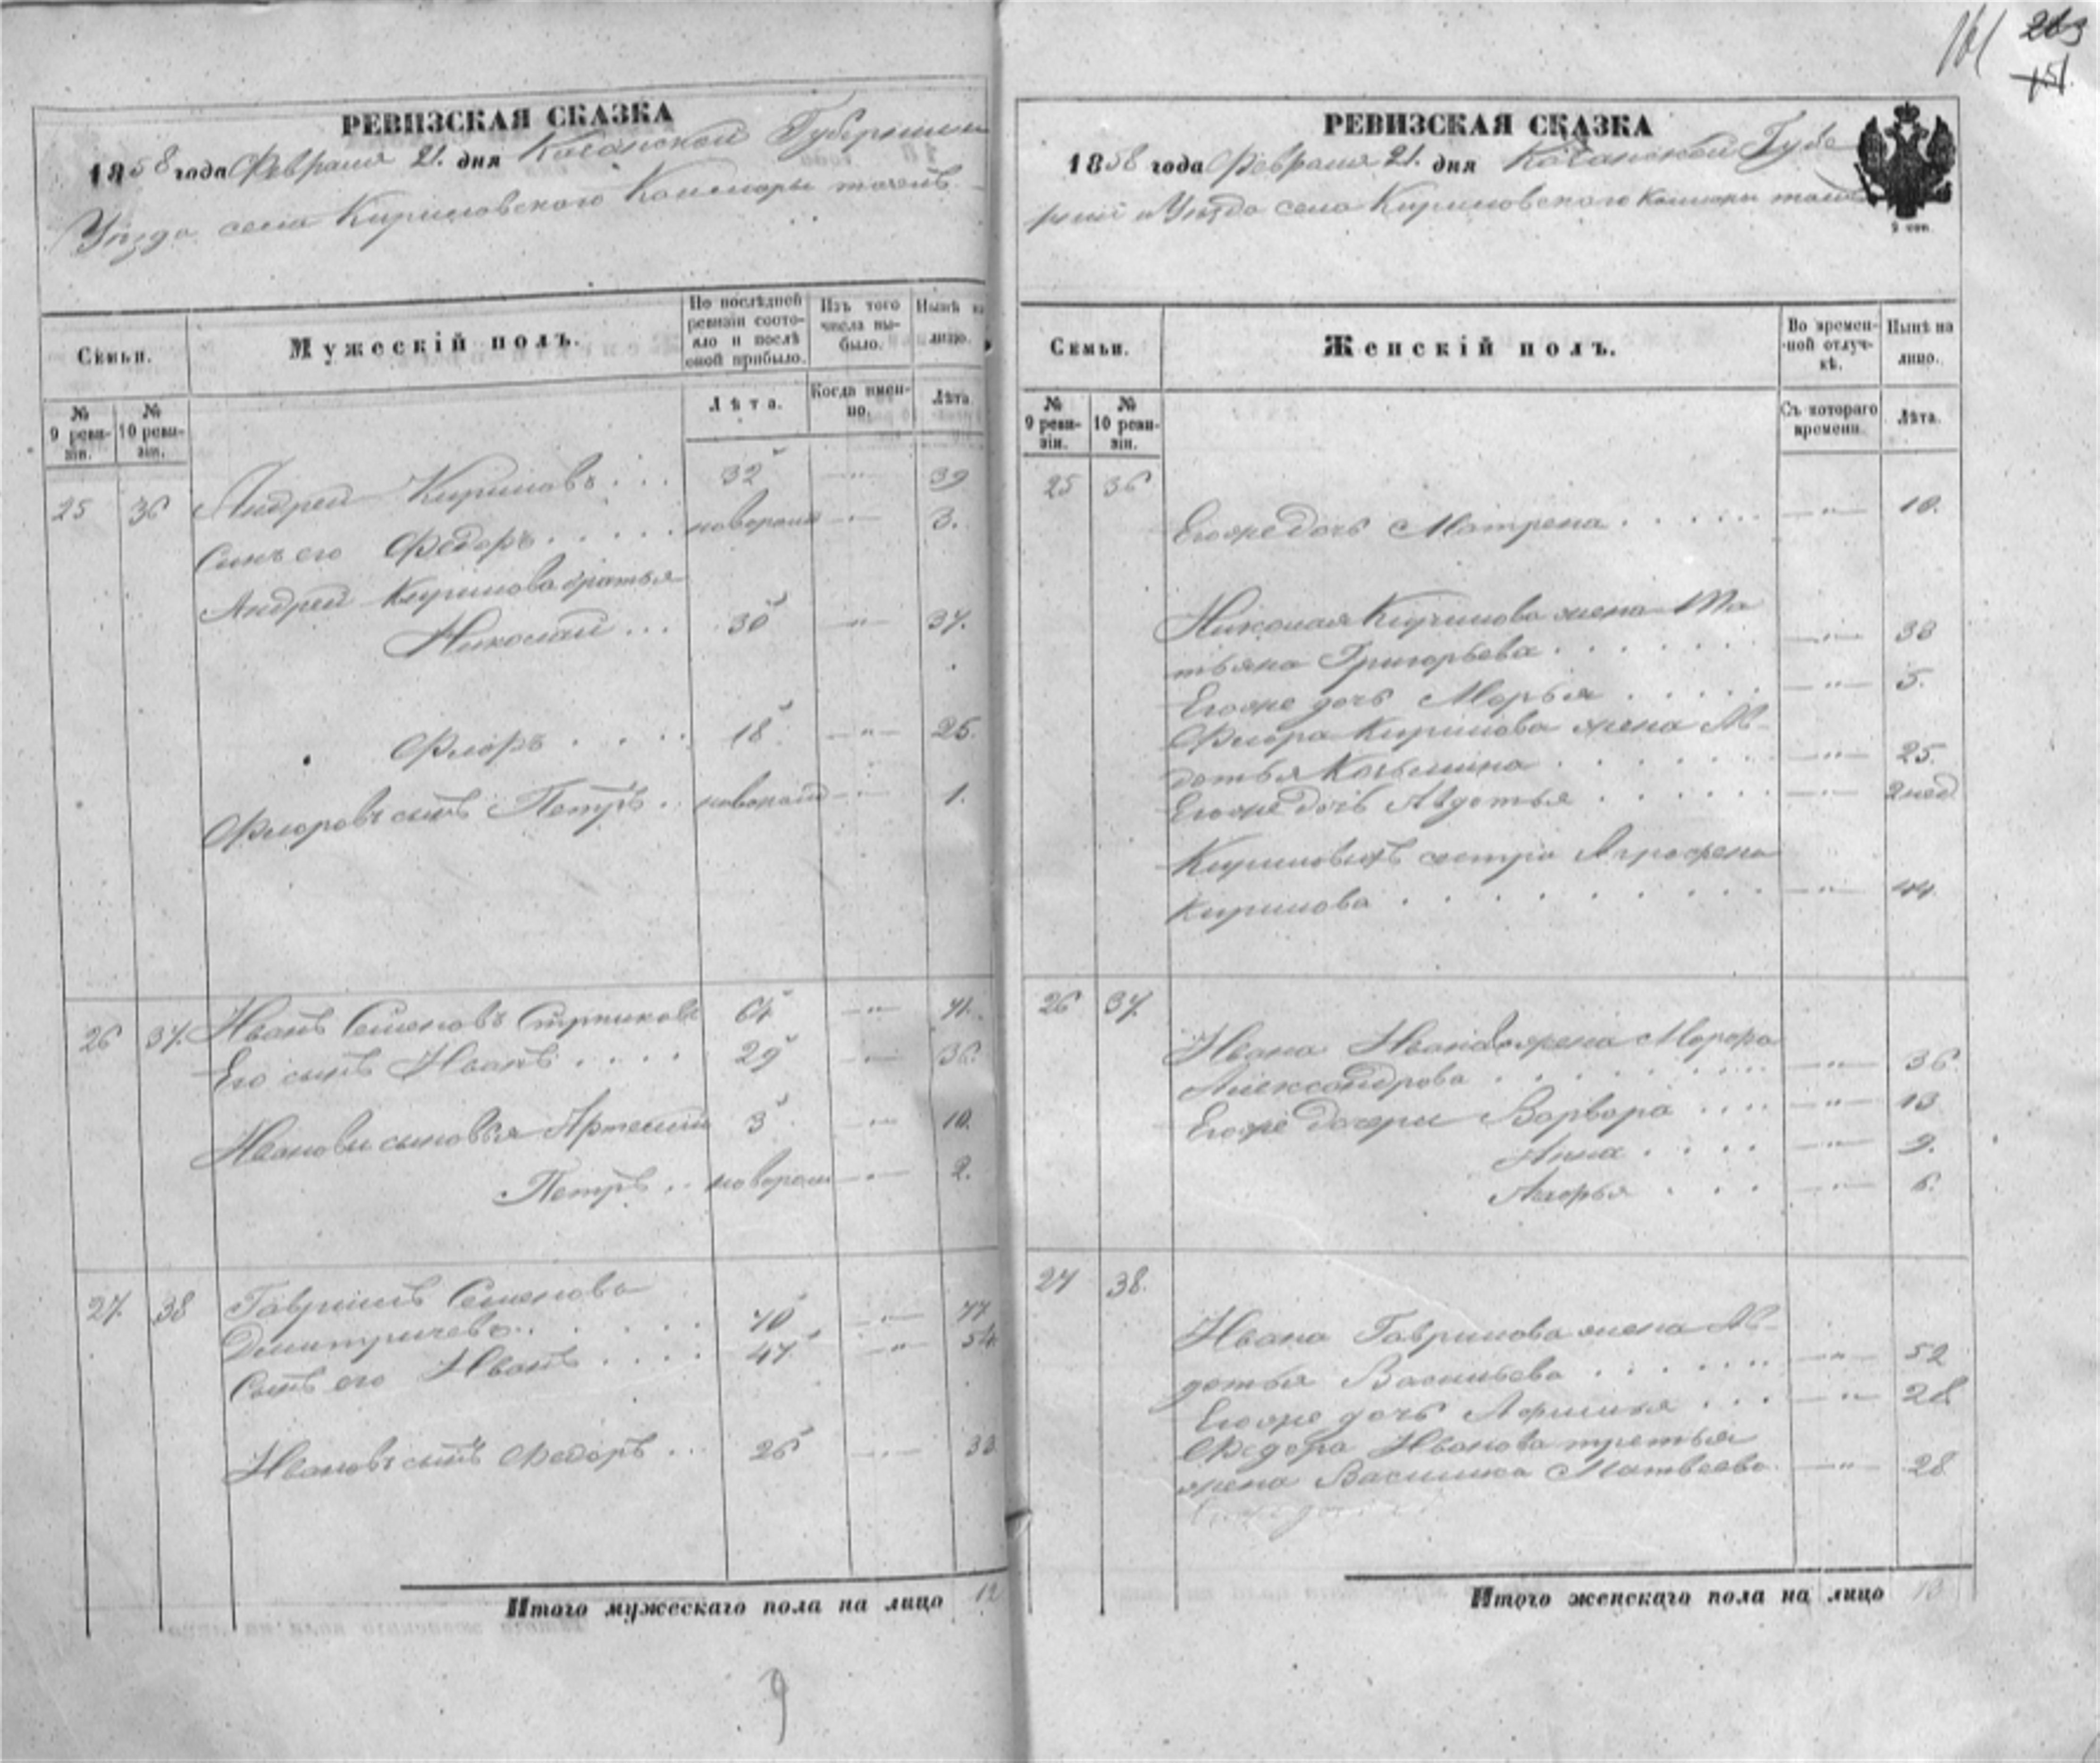 161 263
151
РЕВИЗСКАЯ СКАЗКА
1858 года Февраля 21. дня Казанской Губернии
Уѣзда села Кириловского Канторы
Семьи.
Мужескій полъ.
По послѣдней ревизіи состояло и послѣ оной прибыло.
Изъ того числа выбыло.
Нынѣ на лицо.
№ 9 ревизіи.
№ 10 ревизіи.
Лѣта.
Когда именно.
Лѣта.
25 36 Андрей Кириловъ . . . 32 —"— 39
Сынъ его Федоръ . . . . . новорожд —"— 3.
Андрея Кирилова братья
Николай . . . 30 —"— 37.
Флоръ . . . . 18 —"— 25.
Флоровъ сынъ Петръ . . новорожд —"— 1.
26 37. Иванъ Семеновъ 64 —"— 71.
Его сынъ Иванъ . . . . 29 —"— 36.
Ивановы сыновья Артемій 3 —"— 10.
Петръ . . новорож —"— 2.
27. 38 Гаврилъ Семеновъ
Дмитричевъ . . . . . . 70 —"— 77
Сынъ его Иванъ . . . . 47. —"— 54.
Ивановъ сынъ Федоръ . . 26 —"— 33
Итого мужескаго пола на лицо 12
9
РЕВИЗСКАЯ СКАЗКА
1858 года Февраля 21. дня Казанской Губе
рніи и Уѣзда села Кириловского Канторы
2 коп.
Семьи.
Женскій полъ.
Во временной отлучкѣ.
Нынѣ на лицо.
№ 9 ревизіи.
№ 10 ревизіи.
Съ котораго времени.
Лѣта.
25 36
Егоже дочь Матрена . . . . . . —"— 10.
Николая Кирилова жена Та
тьяна Григорьева . . . . . . —"— 38
Егоже дочь Марья . . . . . —"— 5.
Флора Кирилова жена Ав-
дотья Козьмина . . . . . . —"— 25.
Егоже дочь Авдотья . . . . . . —"— 2 нед
Кириловыхъ сестра Аграфена
Кирилова . . . . . . . . . —"— 44.
26 37.
Ивана Иванова жена
Александрова . . . . . . . —"— 36.
Егоже дочери Варвара . . . . —"— 13
Анна . . . . —"— 9.
. . . —"— 6.
27 38.
Ивана Гаврилова жена Ав-
дотья Васильева . . . . . . . —"— 52
Егоже дочь . . . —"— 28
Федора Иванова третья
жена Василиса Матвеева. —"— 28
Итого женскаго пола на лицо 13